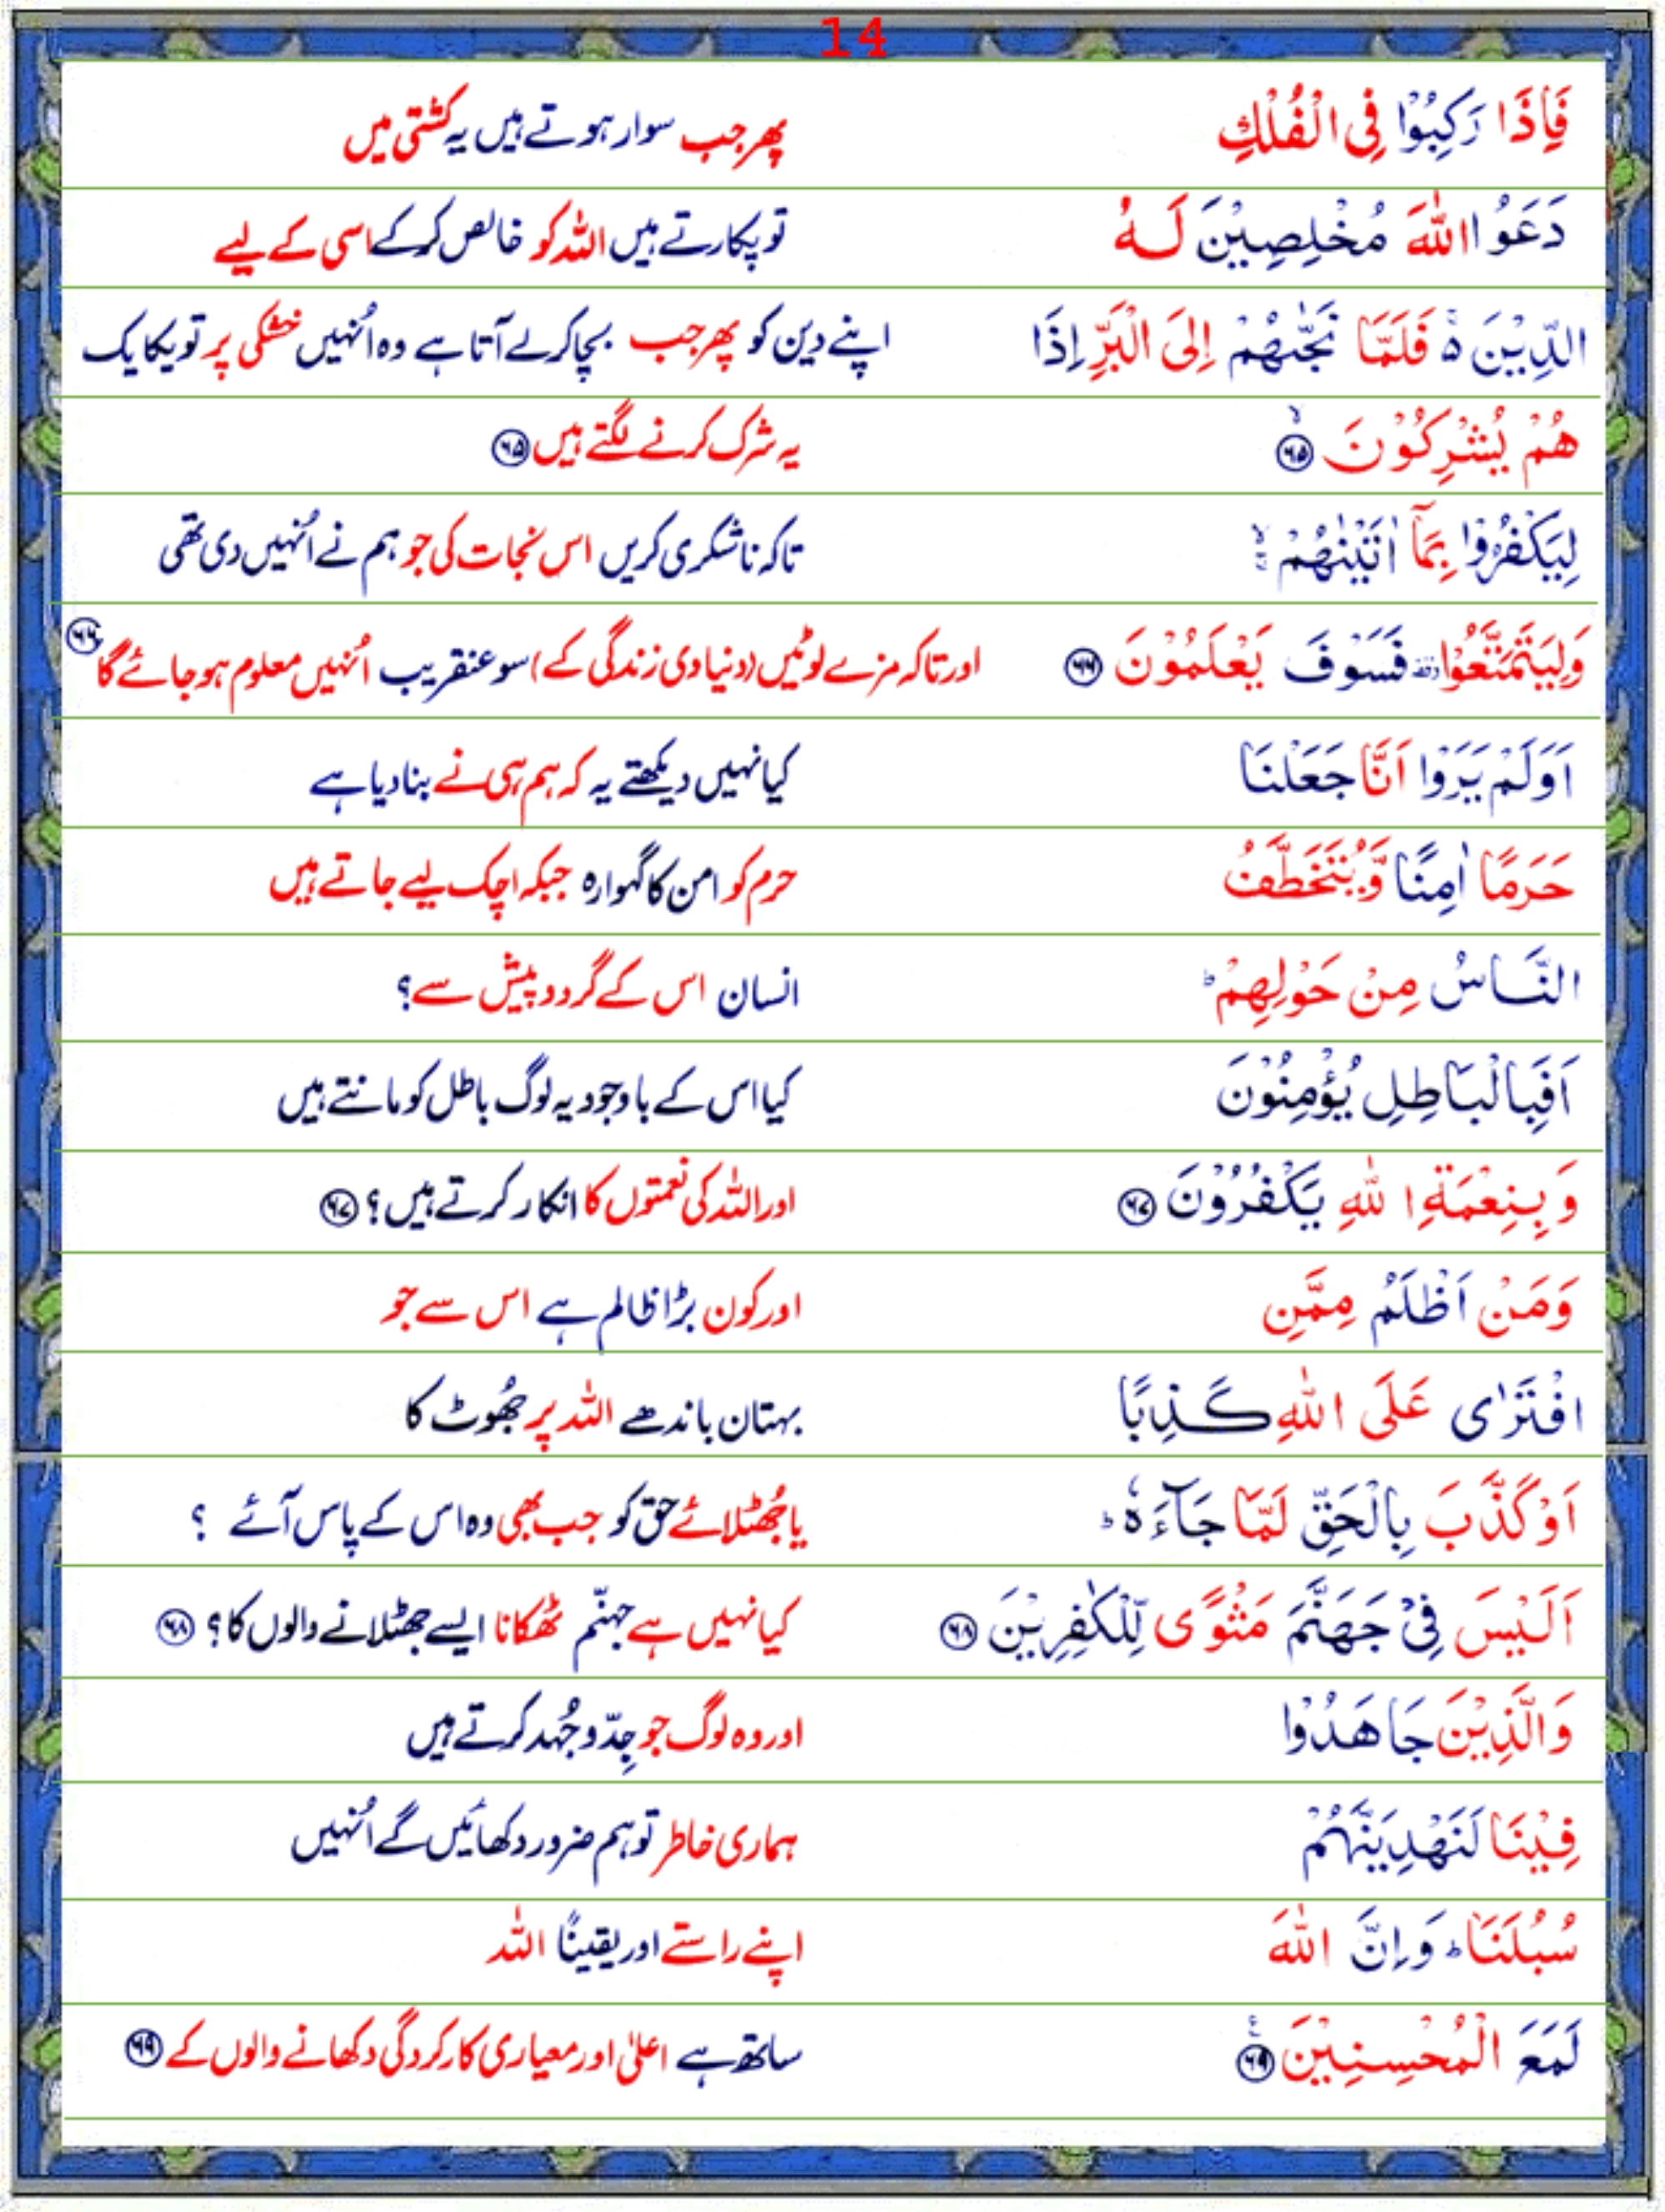 14
فَاِذَا رَكِبُوْا فِى الْفُلْكِ پھر جب سوار ہوتے ہیں یہ کشتی میں
دَعَوُا اللّٰهَ مُخْلِصِيْنَ لَـهُ تو پکارتے ہیں اللہ کو خالص کر کے اسی کے لیے
الدِّيْنَ ەۚ فَلَمَّا نَجّٰىهُمْ اِلَى الْبَرِّ اِذَا اپنے دین کو پھر جب بچا کر لے آتا ہے وہ اُنہیں خشکی پر تو یکایک
هُمْ يُشْرِكُوْنَ ۙ﴿۶۵﴾ یہ شرک کرنے لگتے ہیں ﴿۶۵﴾
لِيَكْفُرُوْا بِمَآ اٰتَيْنٰهُمْ ۙۚ تاکہ ناشکری کریں اس نجات کی جو ہم نے اُنہیں دی تھی
وَلِيَتَمَتَّعُوْا وقفہ فَسَوْفَ يَعْلَمُوْنَ ﴿۶۶﴾ اور تاکہ مزے لوٹیں (دنیا دی زندگی کے) سو عنقریب اُنہیں معلوم ہو جائے گا ﴿۶۶﴾
اَوَلَمْ يَرَوْا اَنَّا جَعَلْنَا کیا نہیں دیکھتے یہ کہ ہم ہی نے بنا دیا ہے
حَرَمًا اٰمِنًا وَّيُتَخَطَّفُ حرم کو امن کا گہوارہ جبکہ اچک لیے جاتے ہیں
النَّاسُ مِنْ حَوْلِهِمْ ؕ انسان اس کے گرد و پیش سے؟
اَفَبِالْبَاطِلِ يُؤْمِنُوْنَ کیا اس کے باوجود یہ لوگ باطل کو مانتے ہیں
وَبِنِعْمَةِ اللّٰهِ يَكْفُرُوْنَ ﴿۶۷﴾ اور اللہ کی نعمتوں کا انکار کرتے ہیں؟ ﴿۶۷﴾
وَمَنْ اَظْلَمُ مِمَّنِ اور کون بڑا ظالم ہے اس سے جو
افْتَرٰى عَلَى اللّٰهِ كَذِبًا بہتان باندھے اللہ پر جھُوٹ کا
اَوْ كَذَّبَ بِالْحَقِّ لَمَّا جَآءَهٗ ؕ یا جھُٹلائے حق کو جب بھی وہ اس کے پاس آئے ؟
اَلَيْسَ فِىْ جَهَنَّمَ مَثْوًى لِّلْكٰفِرِيْنَ ﴿۶۸﴾ کیا نہیں ہے جہنّم ٹھکانا ایسے جھٹلانے والوں کا؟ ﴿۶۸﴾
وَالَّذِيْنَ جَاهَدُوْا اور وہ لوگ جو جِدّ و جُہد کرتے ہیں
فِيْنَا لَنَهْدِيَنَّهُمْ ہماری خاطر تو ہم ضرور دکھائیں گے اُنہیں
سُبُلَنَا ؕ وَاِنَّ اللّٰهَ اپنے راستے اور یقینًا اللہ
لَمَعَ الْمُحْسِنِيْنَ ﴿۶۹﴾ۧ ساتھ ہے اعلیٰ اور معیاری کارکردگی دکھانے والوں کے ﴿۶۹﴾